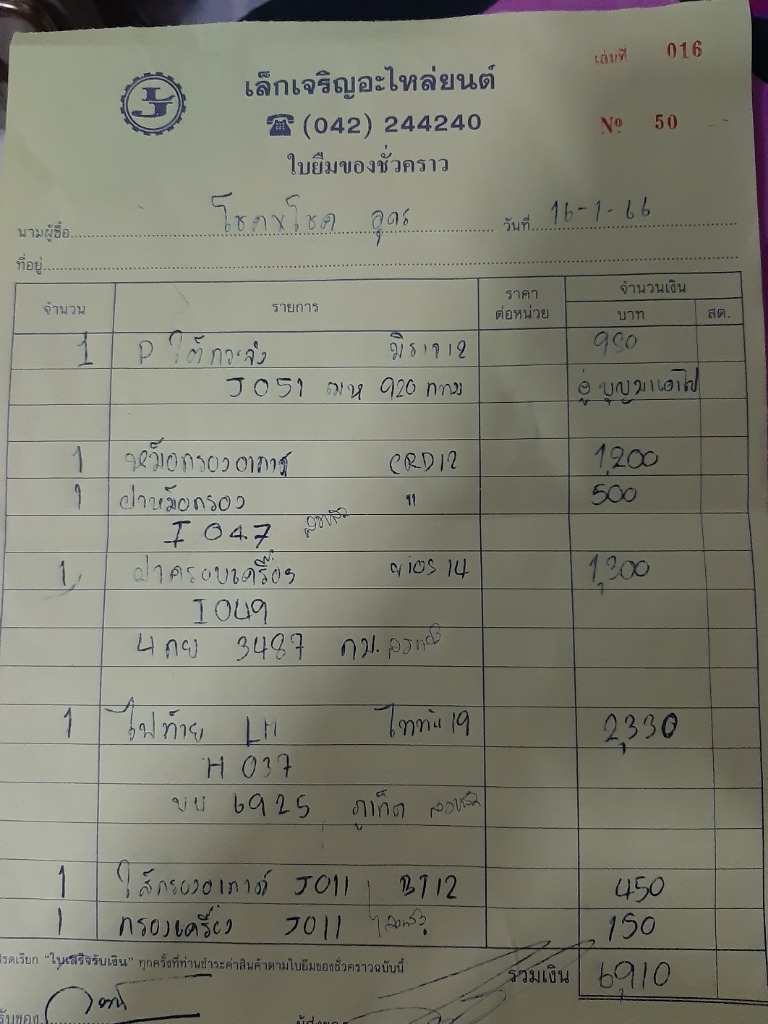 เล่มที่ 016
LJ
เล็กเจริญอะไหล่ยนต์
☎ (042) 244240
Nº 50
ใบยืมของชั่วคราว
นามผู้ซื้อ โชคxโชค อุดร วันที่ 16-1-66
ที่อยู่
จำนวน รายการ ราคาต่อหน่วย จำนวนเงิน
บาท สต.
1 P ใต้กระจัง มิราจ12 980
J051 ฒห 920 กทม อู่ บุญมาเอาไป
1 หม้อกรองอากาศ CRD12 1200
1 ฝาหม้อกรอง " 500
I 047
1 ฝาครอบเครื่อง vios 14 1,300
I 049
4 กย 3487 กม.
1 ไฟท้าย LH ไททัน 19 2,330
H 037
บน 6925 ภูเก็ต
1 ไส้กรองอากาศ J011 BT12 450
1 กรองเครื่อง J011 150
โปรดเรียก "ใบเสร็จรับเงิน" ทุกครั้งที่ท่านชำระค่าสินค้าตามใบยืมของชั่วคราวฉบับนี้
รวมเงิน 6,910